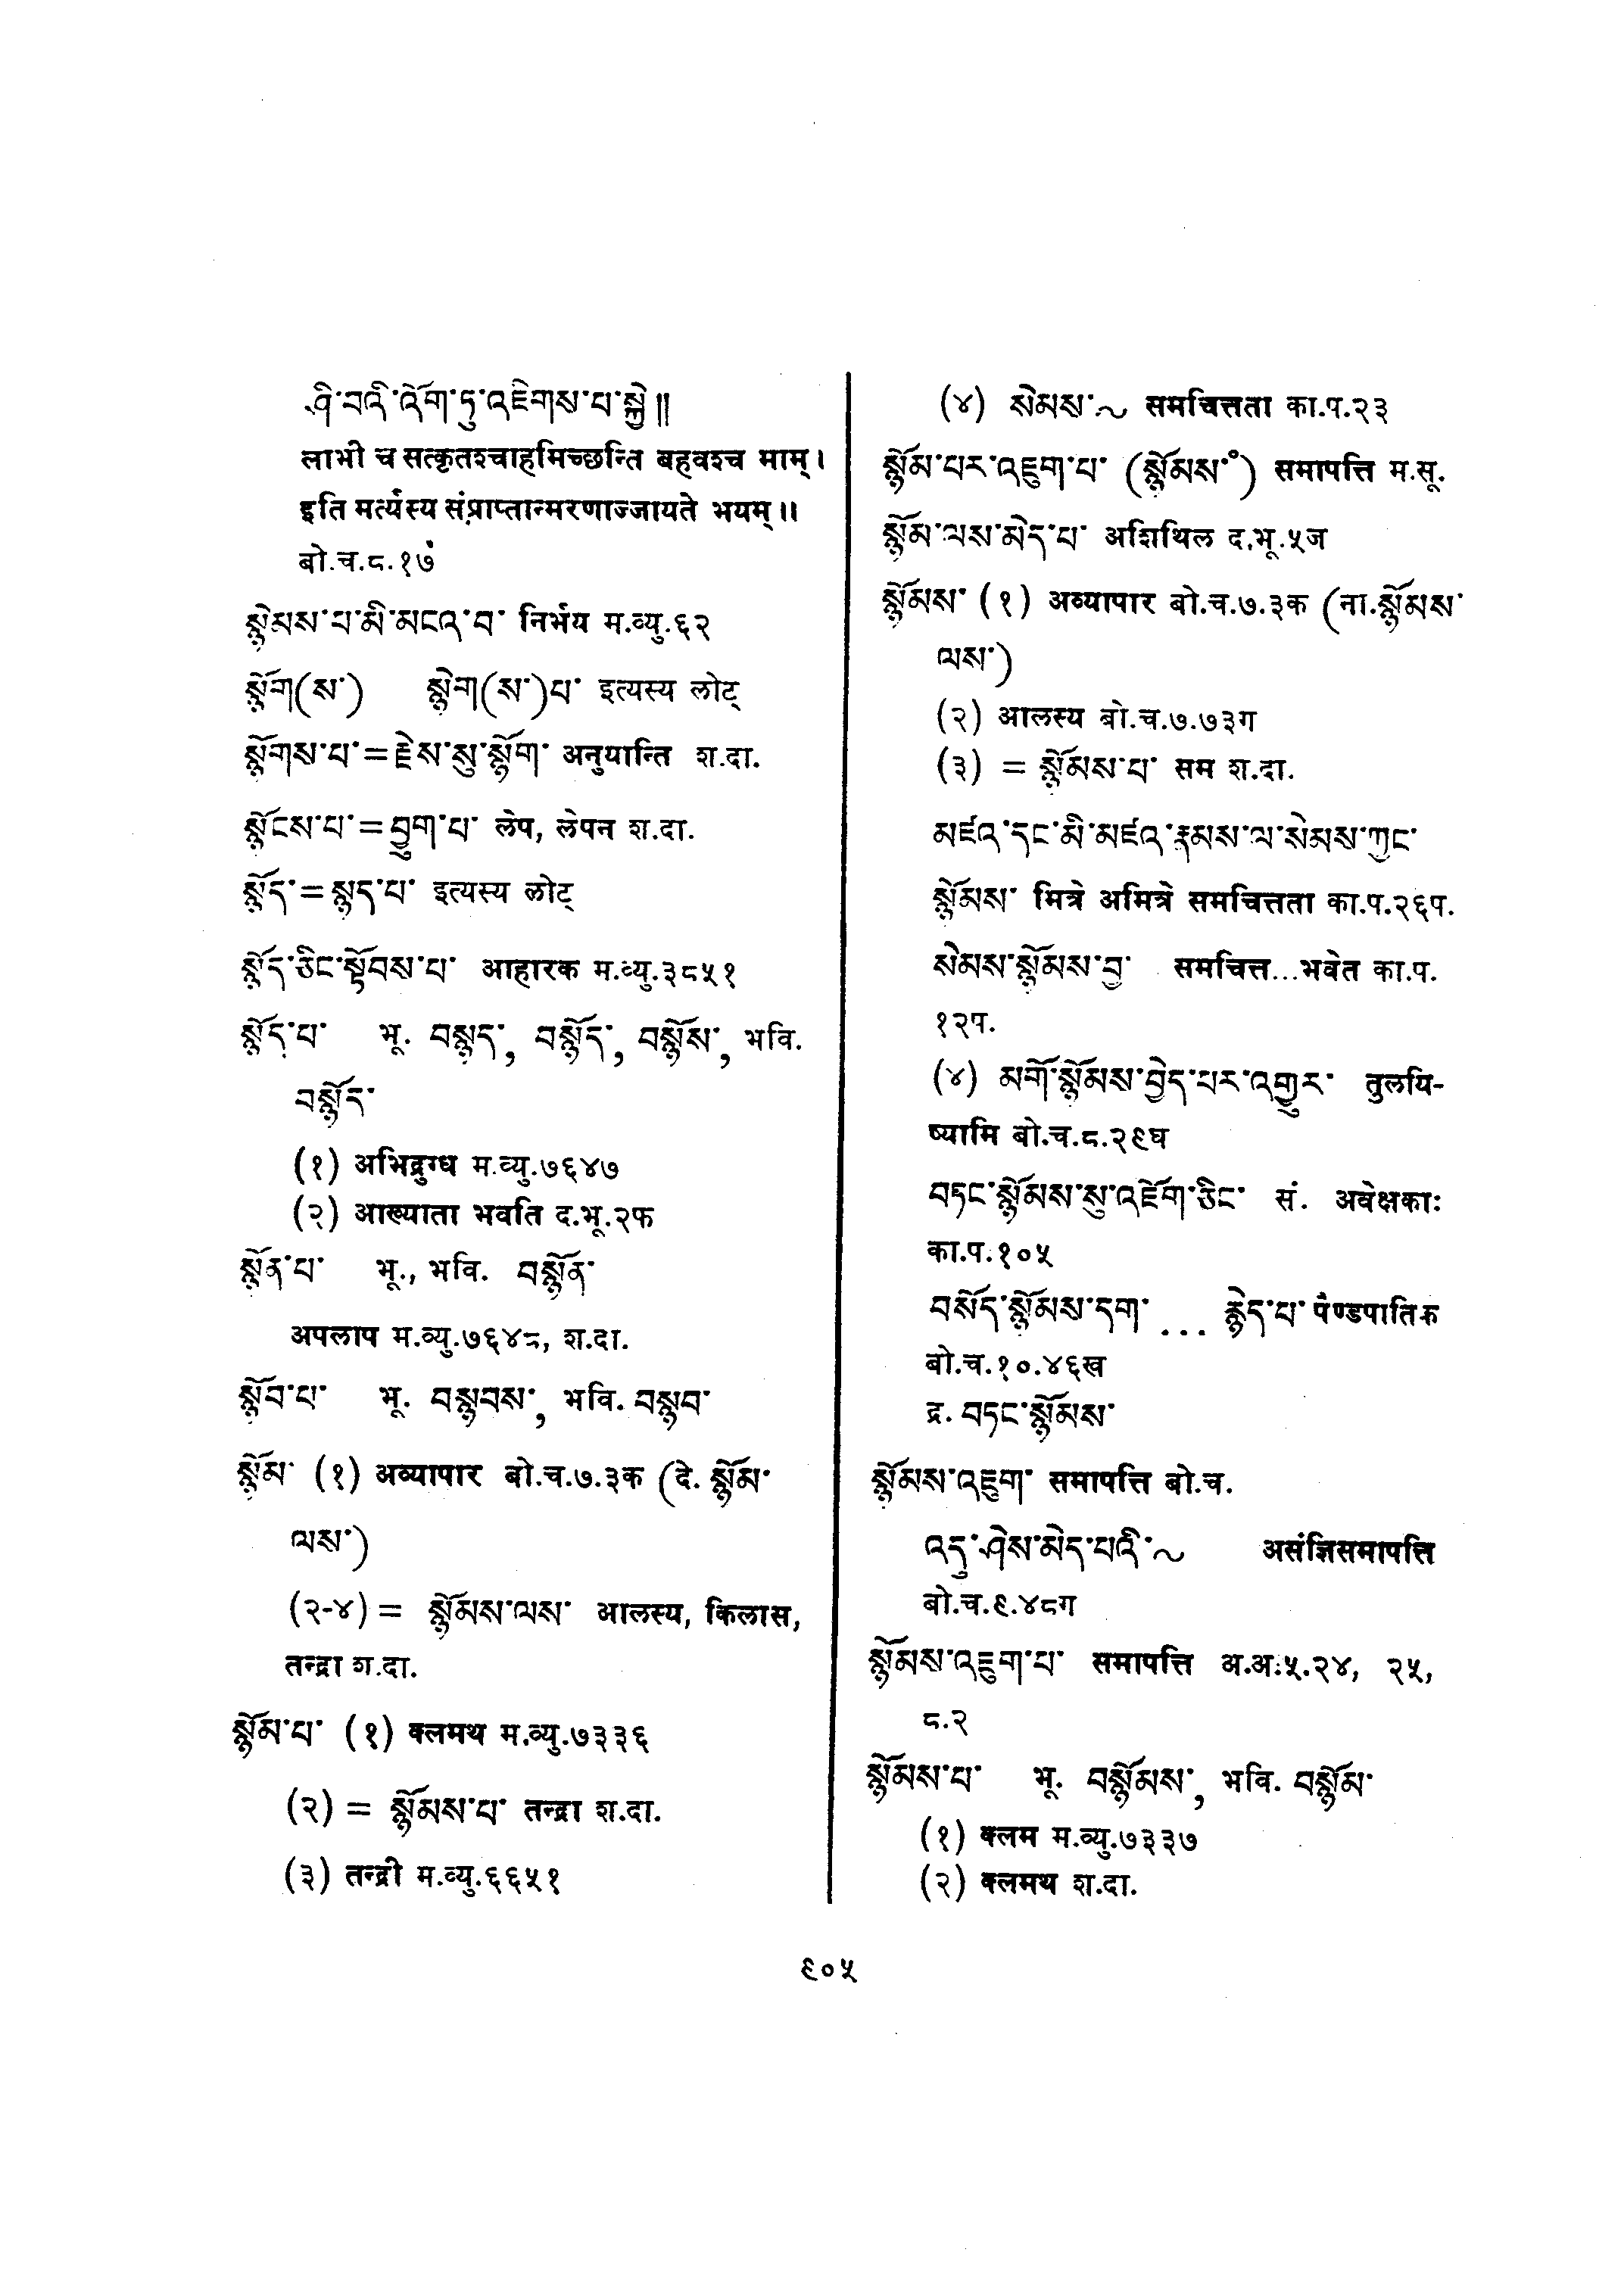 ཤི་བའི་འོག་ཏུ་འཇིགས་པ་སྐྱེ༎
लाभी च सत्कृतश्चाहमिच्छन्ति बहवश्च माम्।
इति मर्त्यस्य संप्राप्तान्मरणाज्जायते भयम्॥
बो.च.८.१७
སྙེམས་པ་མི་མངའ་བ་ निर्भय म.व्यु.६२
སྙོག(ས་) སྙེག(ས་)པ་ इत्यस्य लोट्
སྙོགས་པ་=རྗེས་སུ་སྙོག་ अनुयान्ति श.दा.
སྙོངས་པ་=བྱུག་པ་ लेप, लेपन श.दा.
སྙོད་=སྙད་པ་ इत्यस्य लोट्
སྙོད་ཅིང་སྟོབས་པ་ आहारक म.व्यु.३८५१
སྙོད་པ་ भू. བསྙད་, བསྙོད་, བསྙོས་, भवि.
བསྙོད་
(१) अभिद्रुग्ध म.व्यु.७६४७
(२) आख्याता भवति द.भू.२फ
སྙོན་པ་ भू., भवि. བསྙོན་
अपलाप म.व्यु.७६४८, श.दा.
སྙོབ་པ་ भू. བསྙབས་, भवि. བསྙབ་
སྙོམ་ (१) अव्यापार बो.च.७.३क (दे. སྙོམ་
ལས་)
(२-४) = སྙོམས་ལས་ आलस्य, किलास,
तन्द्रा श.दा.
སྙོམ་པ་ (१) क्लमथ म.व्यु.७३३६
(२) = སྙོམས་པ་ तन्द्रा श.दा.
(३) तन्द्री म.व्यु.६६५१
(४) སེམས་～ समचित्तता का.प.२३
སྙོམ་པར་འཇུག་པ་ (སྙོམས་॰) समापत्ति म.सू.
སྙོམ་ལས་མེད་པ་ अशिथिल द.भू.५ज
སྙོམས་ (१) अव्यापार बो.च.७.३क (ना.སྙོམས་
ལས་)
(२) आलस्य बो.च.७.७३ग
(३) = སྙོམས་པ་ सम श.दा.
མཛའ་དང་མི་མཛའ་རྣམས་ལ་སེམས་ཀྱང་
སྙོམས་ मित्रे अमित्रे समचित्तता का.प.२६प.
སེམས་སྙོམས་བྱ་ समचित्त...भवेत का.प.
१२प.
(४) མགོ་སྙོམས་བྱེད་པར་འགྱུར་ तुलयि-
ष्यामि बो.च.८.२९घ
བཏང་སྙོམས་སུ་འཇོག་ཅིང་ सं. अवेक्षकाः
का.प.१०५
བསོད་སྙོམས་དག་ ... རྙེད་པ་ पैण्डपातिक
बो.च.१०.४६ख
द्र. བཏང་སྙོམས་
སྙོམས་འཇུག་ समापत्ति बो.च.
འདུ་ཤེས་མེད་པའི་～ असंज्ञिसमापत्ति
बो.च.९.४८ग
སྙོམས་འཇུག་པ་ समापत्ति अ.अ.५.२४, २५,
८.२
སྙོམས་པ་ भू. བསྙོམས་, भवि. བསྙོམ་
(१) क्लम म.व्यु.७३३७
(२) क्लमथ श.दा.
९०५